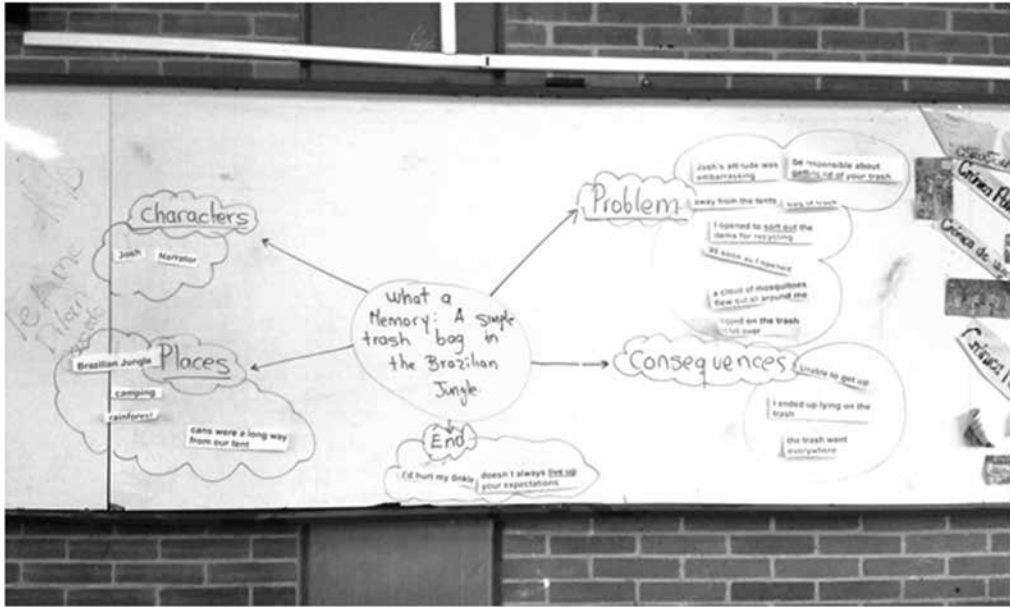 Characters
Josh
Narrator
Places
Brazilian Jungle
camping
rainforest
cans were a long way
from our tent
What a
Memory: A simple
trash bag in
the Brazilian
Jungle.
End
I'd hurt my
doesn't always live up
your expectations
Problem
Josh's attitude was
embarrassing
be responsible about
getting rid of your trash
away from the tents
bag of trash
I opened to sort out the
items for recycling
as soon as I opened
a cloud of mosquitoes
flew out all around me
on the trash
over
Consequences
Unable to get up
I ended up lying on the
trash
the trash went
everywhere
Crónica
Crónica de